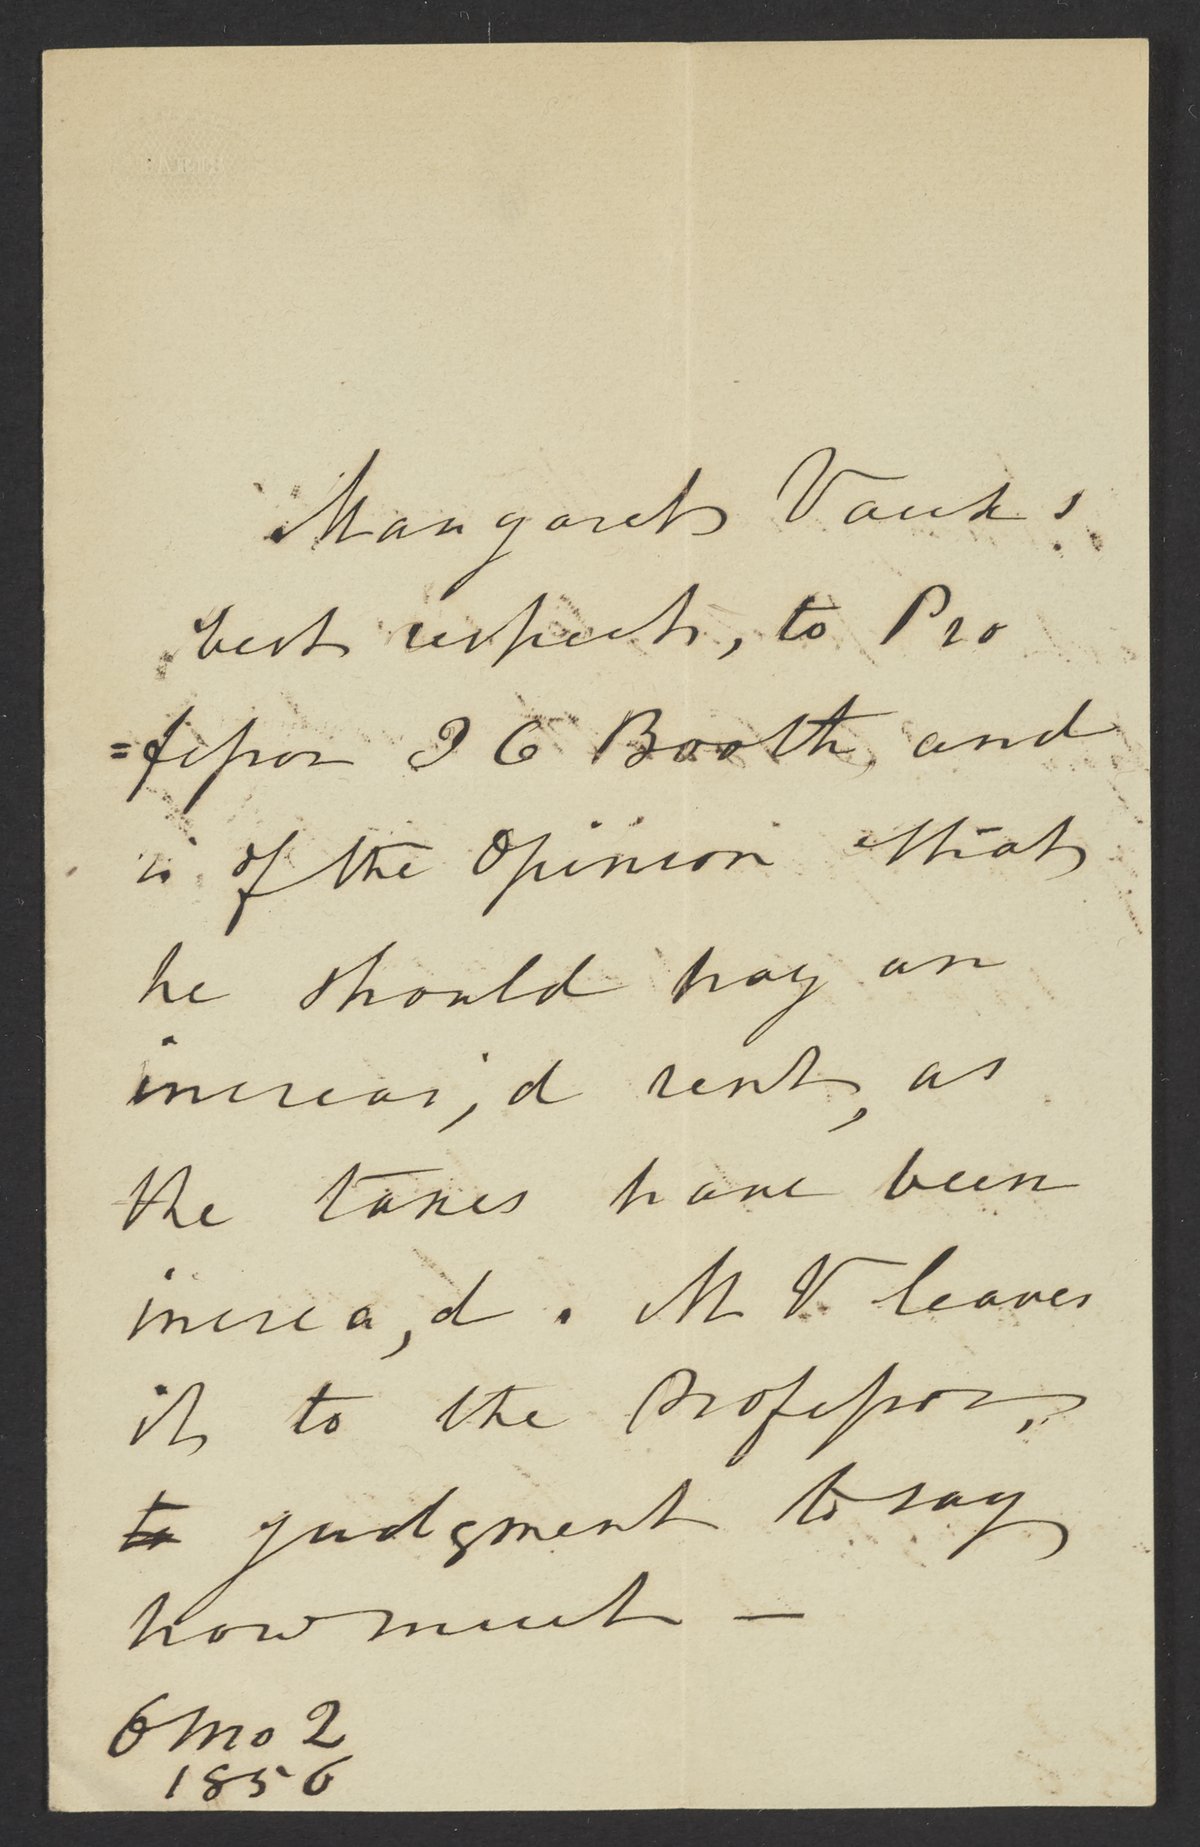 Margaret Vaux s
best respects, to Pro
=fessor J C Booth, and
is of the Opinion that
he should pay an
increas,d rent, as
the taxes have been
increa,d. M V leaves
it to the Professor,s
to judgment to say
how much —
6 mo 2
1856